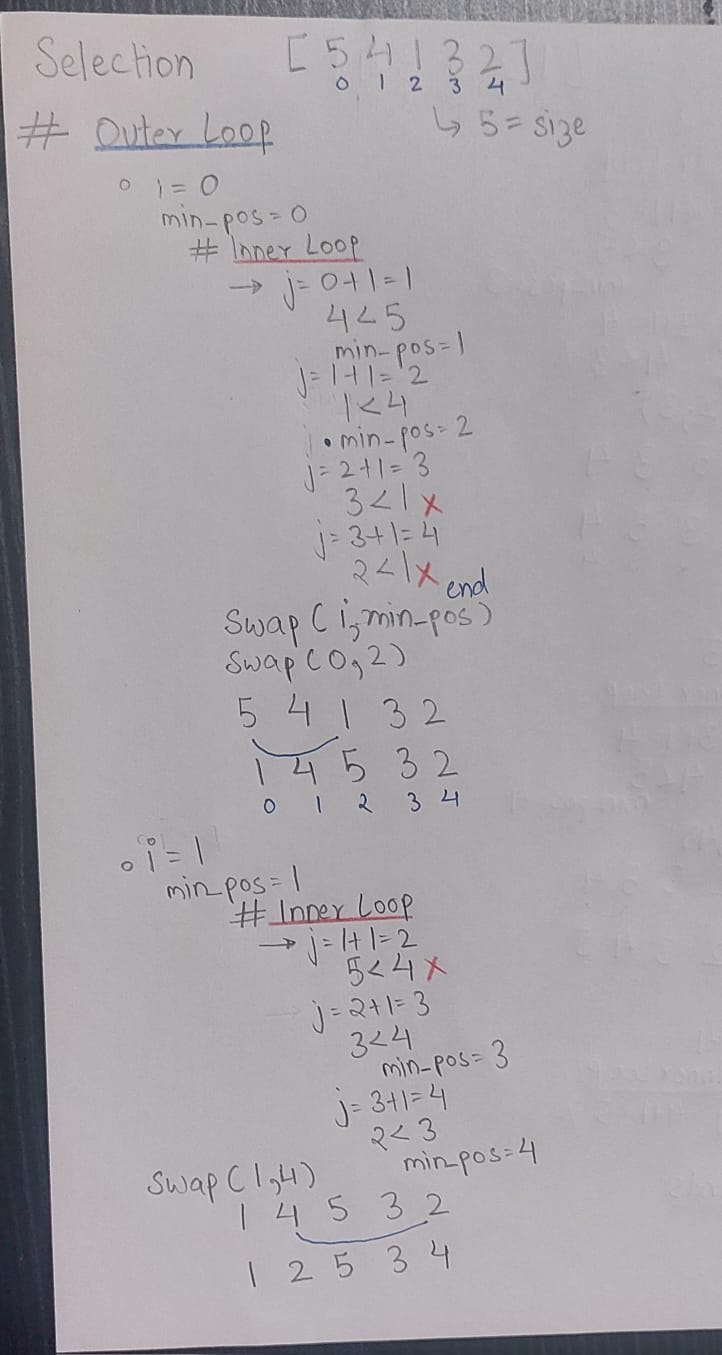 Selection [5 4 1 3 2]
0 1 2 3 4
# Outer Loop ↳ 5 = size
○ i = 0
min-pos = 0
# Inner Loop
→ j = 0+1 = 1
4 < 5
min-pos = 1
j = 1+1 = 2
1 < 4
• min-pos = 2
j = 2+1 = 3
3 < 1 x
j = 3+1 = 4
2 < 1 x
end
Swap (i, min-pos)
Swap (0, 2)
5 4 1 3 2
1 4 5 3 2
0 1 2 3 4
○ i = 1
min-pos = 1
# Inner Loop
→ j = 1+1 = 2
5 < 4 x
j = 2+1 = 3
3 < 4
min-pos = 3
j = 3+1 = 4
2 < 3
min-pos = 4
Swap (1, 4)
1 4 5 3 2
1 2 5 3 4